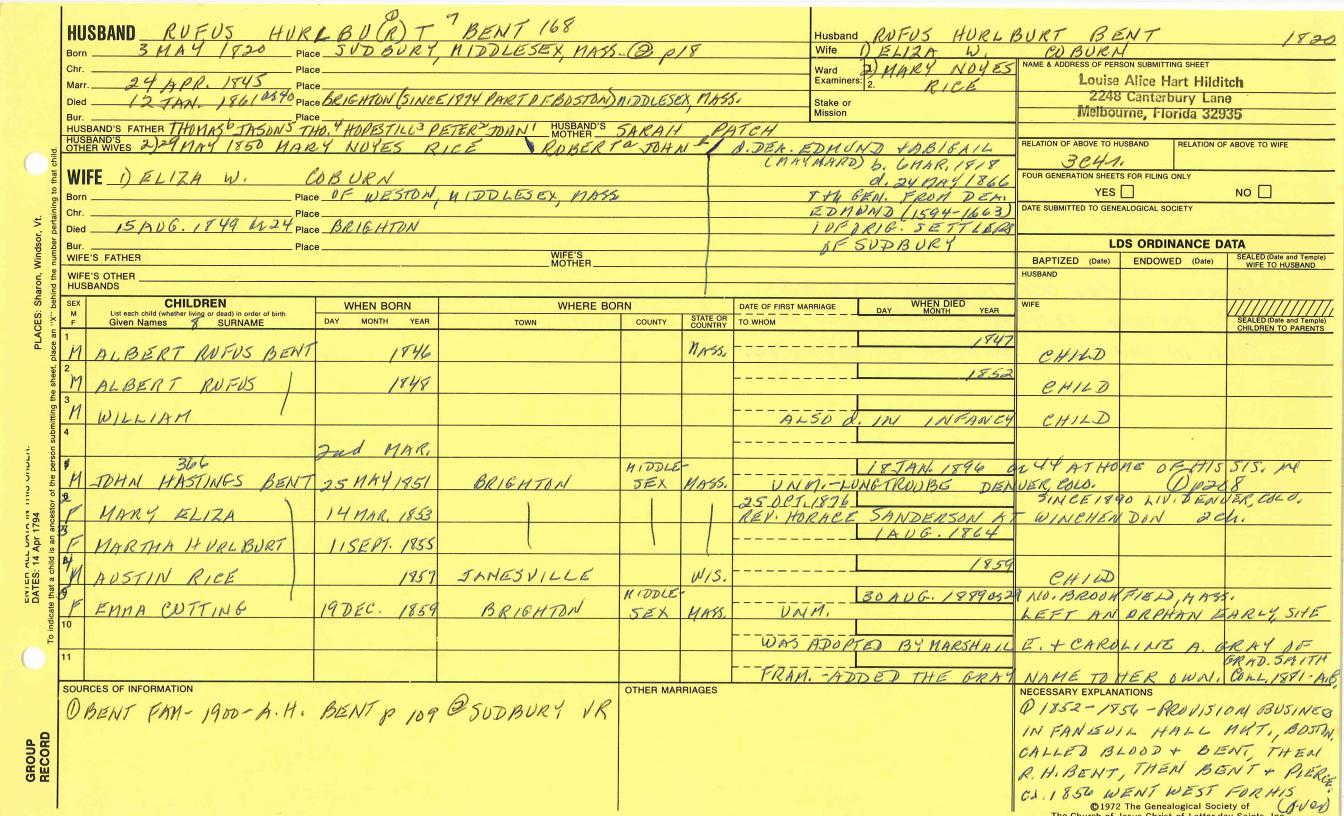 HUSBAND RUFUS HURLBU(R)T 7 BENT 168
Born 3 MAY 1820 Place SUDBURY, MIDDLESEX, MASS. (2) p18
Chr. Place
Marr. 24 APR. 1845 Place
Died 12 JAN. 1861 as 40 Place BRIGHTON (SINCE 1874 PART OF BOSTON) MIDDLESEX, MASS.
Bur. Place
HUSBAND'S FATHER THOMAS6 JASON5 THO.4 HOPESTILL3 PETER2 JOHN1 HUSBAND'S MOTHER SARAH PATCH
HUSBAND'S OTHER WIVES 2) 29 MAY 1850 MARY NOYES RICE
ROBERT JOHN
d. DEA. EDMUND + ABIGAIL
(MAYNARD) b. 6 MAR, 1818
d. 24 MAY 1866
7th GEN. FROM DEA.
EDMUND (1594-1663)
1 OF ORIG. SETTLERS
OF SUDBURY
WIFE 1) ELIZA W. COBURN
Born Place OF WESTON, MIDDLESEX, MASS
Chr. Place
Died 15 AUG. 1849 as 24 Place BRIGHTON
Bur. Place
WIFE'S FATHER WIFE'S MOTHER
WIFE'S OTHER HUSBANDS
Husband RUFUS HURLBURT BENT 1820
Wife 1) ELIZA W. COBURN
Ward 2) MARY NOYES
Examiners: 2. RICE
Stake or Mission
NAME & ADDRESS OF PERSON SUBMITTING SHEET
Louise Alice Hart Hilditch
2248 Canterbury Lane
Melbourne, Florida 32935
RELATION OF ABOVE TO HUSBAND RELATION OF ABOVE TO WIFE
3C4r.
FOUR GENERATION SHEETS FOR FILING ONLY
YES NO
DATE SUBMITTED TO GENEALOGICAL SOCIETY
LDS ORDINANCE DATA
BAPTIZED (Date) ENDOWED (Date) SEALED (Date and Temple) WIFE TO HUSBAND
HUSBAND
WIFE
SEALED (Date and Temple) CHILDREN TO PARENTS
SEX M F CHILDREN WHEN BORN WHERE BORN DATE OF FIRST MARRIAGE WHEN DIED
List each child (whether living or dead) in order of birth
Given Names 8 SURNAME DAY MONTH YEAR TOWN COUNTY STATE OR COUNTRY TO WHOM DAY MONTH YEAR
1 M ALBERT RUFUS BENT 1846 MASS. 1847 CHILD
2 M ALBERT RUFUS 1848 1852 CHILD
3 M WILLIAM ALSO d. IN INFANCY CHILD
4 2nd MAR.
M 366 JOHN HASTINGS BENT 25 MAY 1851 BRIGHTON MIDDLESEX MASS. 18 JAN. 1896 as 44 AT HOME OF HIS SIS. M
UNM.-LUNG TROUBE DENVER, COLO. (1) p208
SINCE 1890 LIV. DENVER, COLO.
F MARY ELIZA 14 MAR. 1853 25 OCT. 1876
REV. HORACE SANDERSON AT WINCHENDON 2ch.
F MARTHA HURLBURT 11 SEPT. 1855 1 AUG. 1864
M AUSTIN RICE 1857 JANESVILLE WIS. 1859 CHILD
9 F EMMA CUTTING 19 DEC. 1859 BRIGHTON MIDDLESEX MASS. UNM. 30 AUG. 1889 as 29 NO. BROOKFIELD, MASS.
LEFT AN ORPHAN EARLY, SHE
10 WAS ADOPTED BY MARSHALL E. + CAROLINE A. GRAY OF
11 FRAM. - ADDED THE GRAY NAME TO HER OWN. GRAD. SMITH COLL. 1881-A.B.
SOURCES OF INFORMATION
(1) BENT FAM- 1900-A.H. BENT p 109 (2) SUDBURY VR
OTHER MARRIAGES
NECESSARY EXPLANATIONS
(1) 1852-1856 - PROVISION BUSINESS
IN FANEUIL HALL MKT., BOSTON,
CALLED BLOOD + BENT, THEN
R.H. BENT, THEN BENT + PIERCE.
ca. 1856 WENT WEST FOR HIS
(over)
©1972 The Genealogical Society of
The Church of Jesus Christ of Latter-day Saints, Inc.
PLACES: Sharon, Windsor, Vt.
To indicate that a child is an ancestor of the person submitting the sheet, place an "X" behind the number pertaining to that child.
ENTER ALL DATA IN THIS ORDER:
DATES: 14 Apr 1794
GROUP RECORD